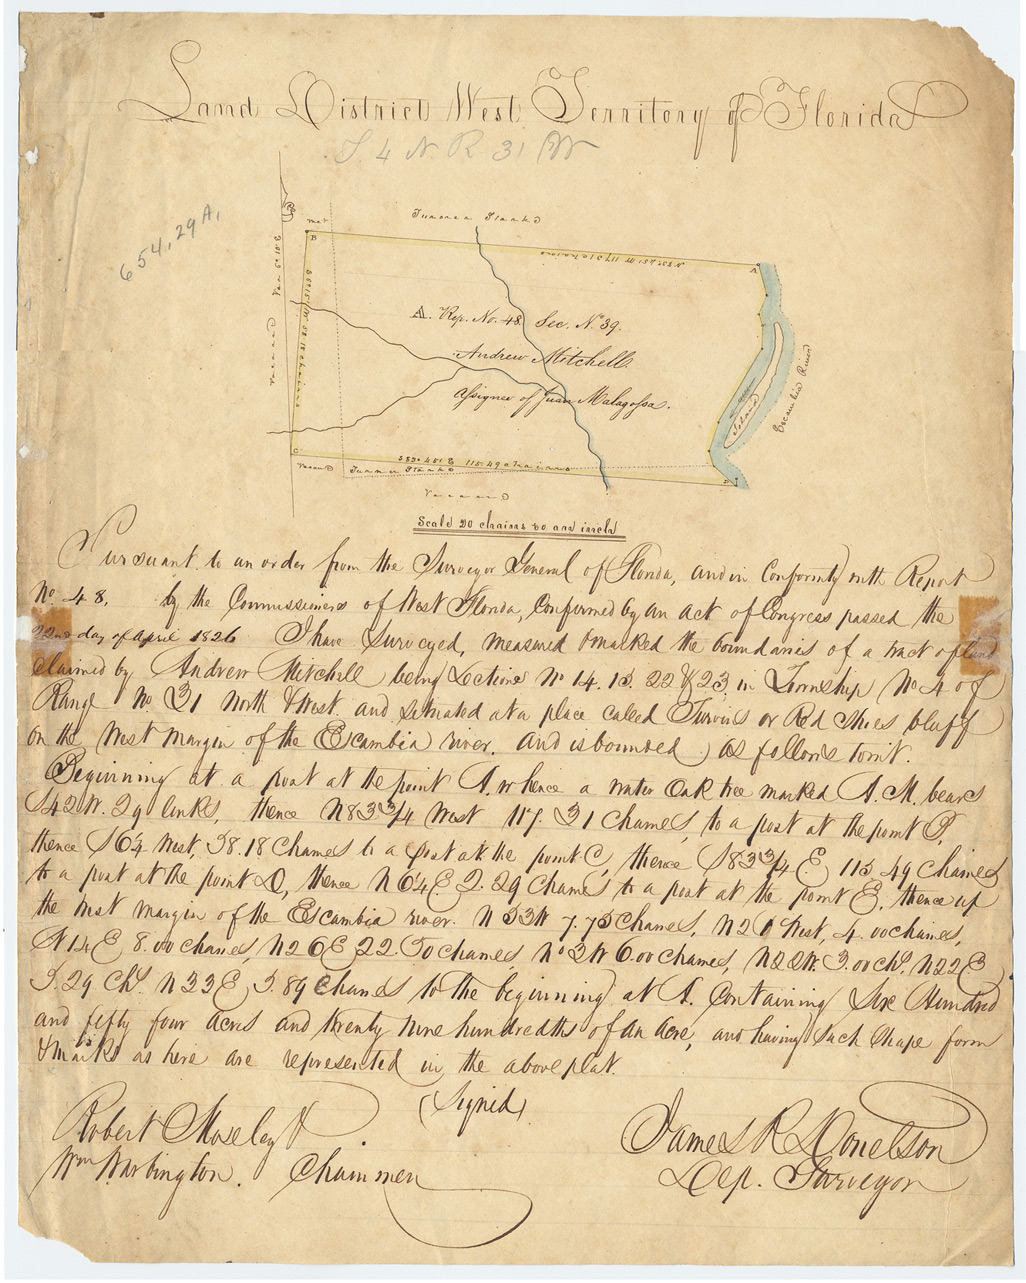 Land District West Territory of Florida
T. 4 N. R. 31 W
654.29 A.
B
A
N 83¾ W 117 31 chains
A. Rep. No. 48 Sec. No. 39.
Andrew Mitchell
assignee of Juan Malagossa.
Escambia River
Island
C
S 83¾ E 115.49 chains
Vacand
Vacand
Scale 20 chains to an inch
Pursuant to an order from the Surveyor General of Florida, and in Conformity with Report
No. 48, by the Commissioners of West Florida, Confirmed by an act of Congress passed the
22nd day of April 1826 I have Surveyed, measured & marked the boundaries of a tract of land
claimed by Andrew Mitchell being Sections No 14. 15. 22 & 23. in Township No. 4 of
Range No. 31 North & West and Situated at a place called or Red Shies bluff
on the West margin of the Escambia river. and is bounded as follows towit.
Beginning at a post at the point A. whence a water Oak tree marked A. M. bears
S 42 W. 29 links, thence N 83¾ West 117. 31 Chaines, to a post at the point B,
thence S 6¼ West, 58.18 Chaines to a post at the point C, thence S 83¾ E. 115 49 Chaines
to a post at the point D, thence N 6¼ E. 2. 29 Chaines to a post at the point E. thence up
the west margin of the Escambia river. N 53 W 7.75 Chaines, N 26 West, 4.00 chaines,
N 14 E 8.00 chaines, N 26 E 22.50 chaines No 3 W 6.00 chaines, N 22 W. 3.00 chs. N 22 E
5.29 Chs. N 33 E, 5.89 Chaines to the beginning at A. Containing Six Hundred
and fifty four acres and twenty nine hundredths of an acre, and having Such Shape form
& marks as here are represented in the above plat.
(Signed)
Robert Moseley James R Donelson
Wm Warbington. Chainmen Dep. Surveyor